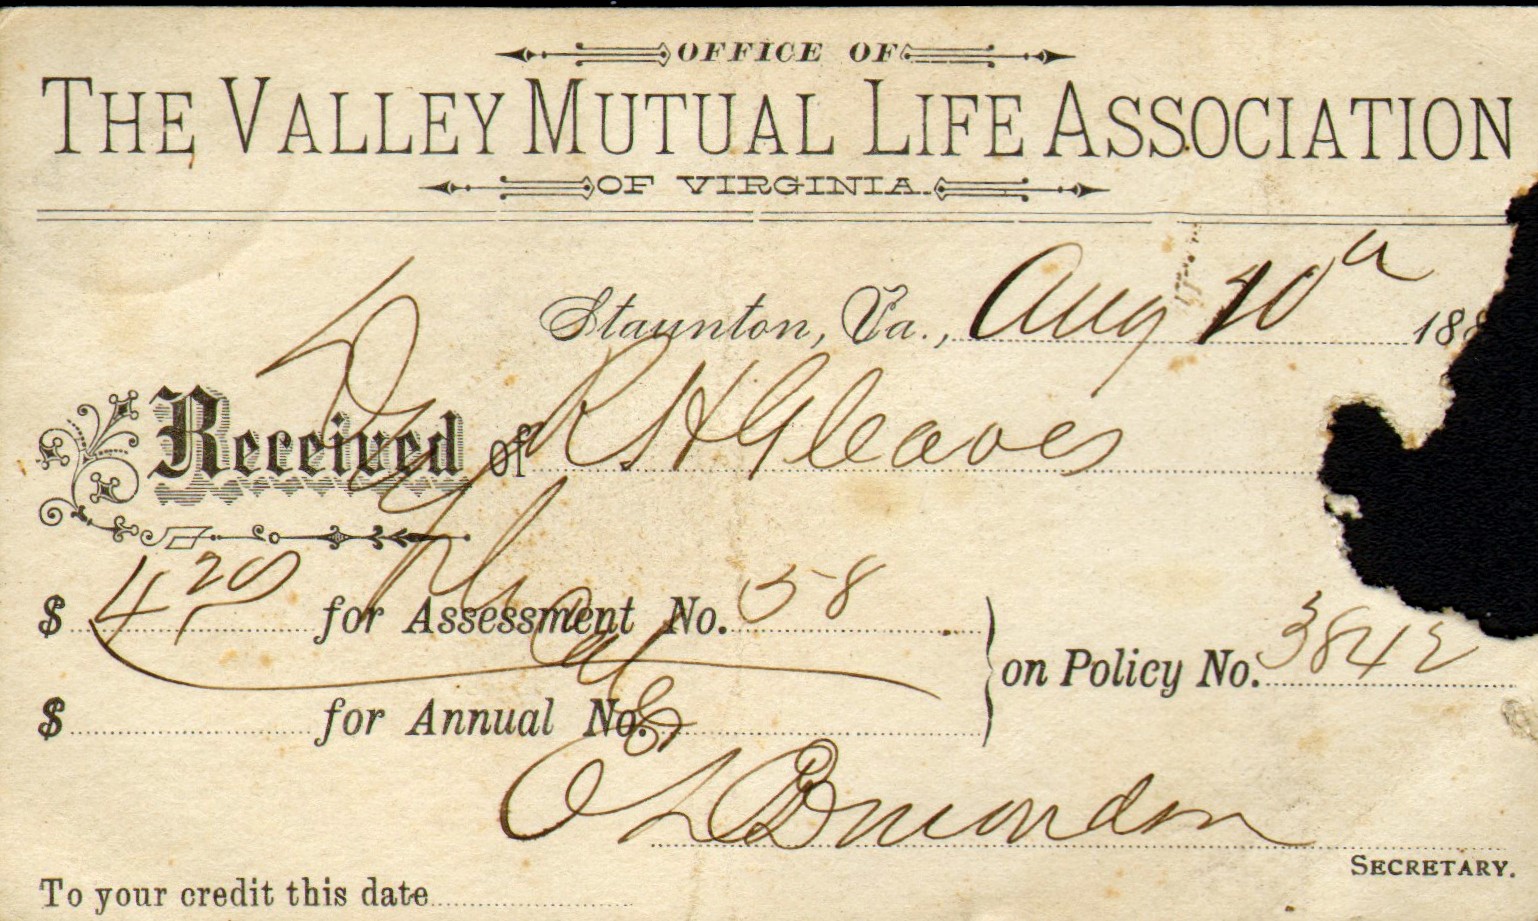 OFFICE OF
THE VALLEY MUTUAL LIFE ASSOCIATION
OF VIRGINIA.
Staunton, Va., Aug 10 188
Received of R H Gleaves
$ 4 20 for Assessment No. 58
on Policy No. 3842
$ for Annual No.
SECRETARY.
To your credit this date